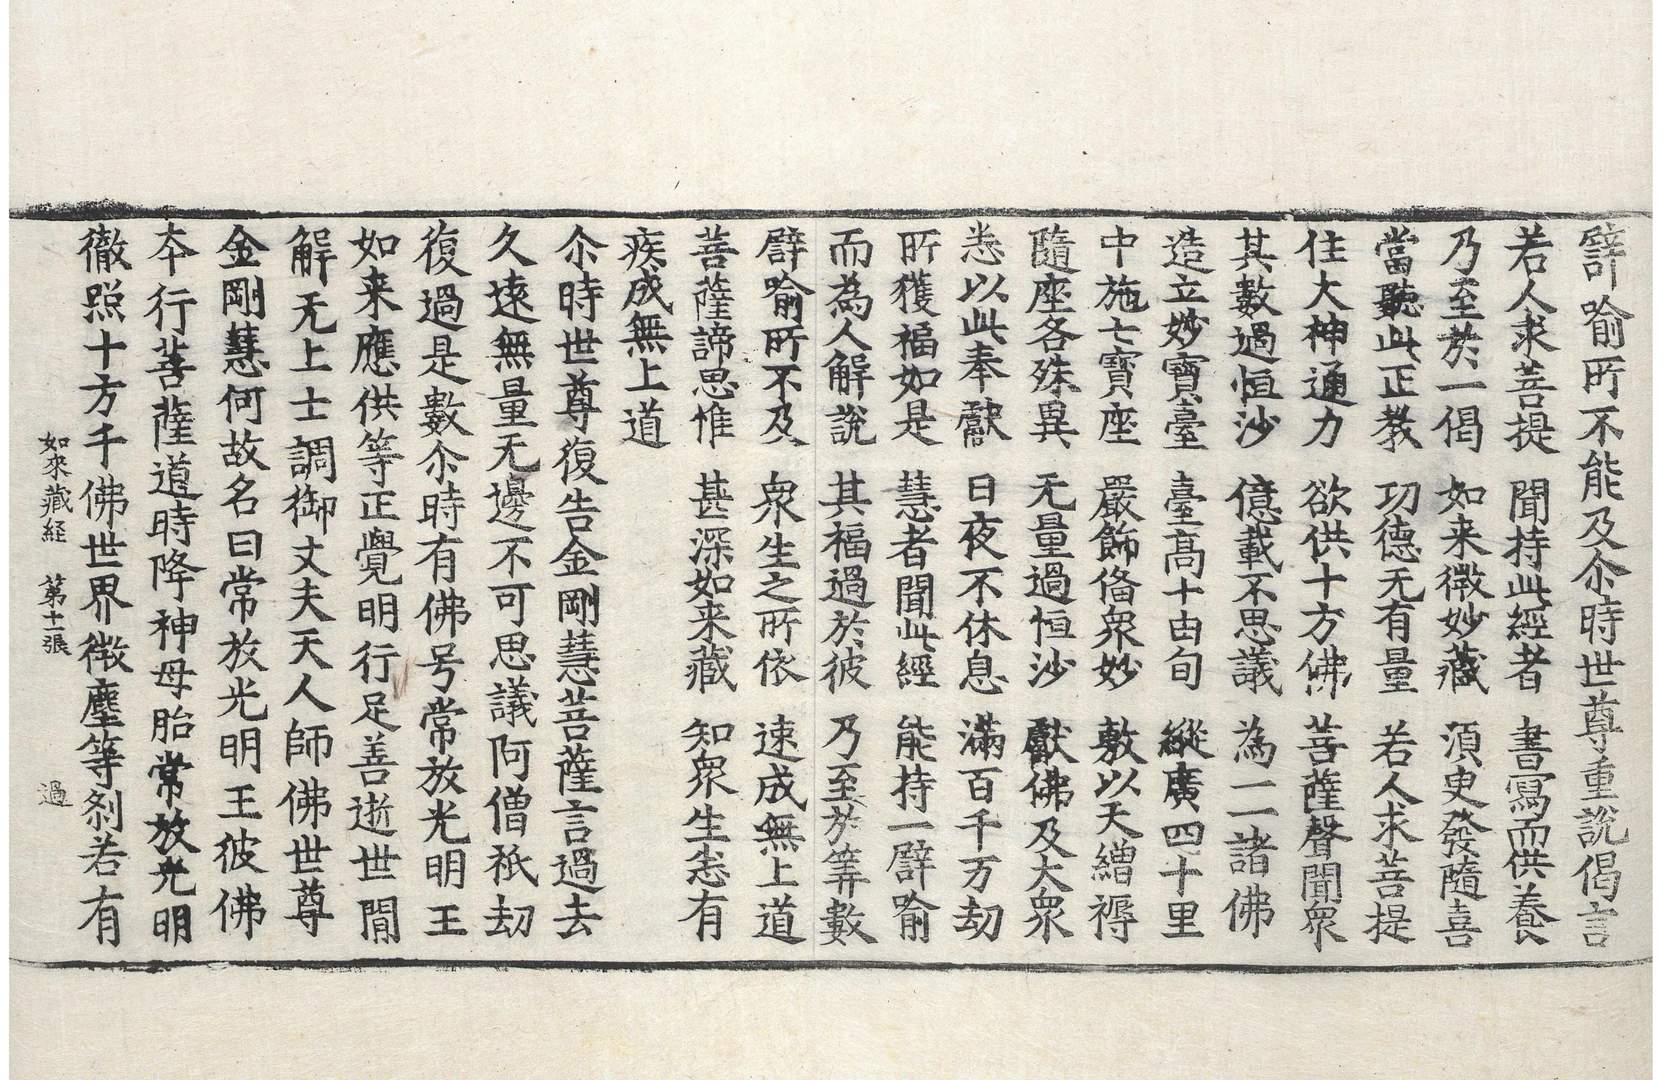 譬喻所不能及尒時世尊重說偈言
若人求菩提　聞持此經者　書寫而供養
乃至於一偈　如来微妙藏　須臾發隨喜
當聽此正教　功德无有量　若人求菩提
住大神通力　欲供十方佛　菩薩聲聞衆
其數過恒沙　億載不思議　為一一諸佛
造立妙寶臺　臺高十由旬　縱廣四十里
中施七寶座　嚴飾俻衆妙　敷以天繒褥
隨座各殊異　无量過恒沙　獻佛及大衆
悉以此奉獻　日夜不休息　滿百千万劫
所獲福如是　慧者聞此經　能持一譬喻
而為人解說　其福過於彼　乃至於筭數
譬喻所不及　衆生之所依　速成無上道
菩薩諦思惟　甚深如来藏　知衆生悉有
疾成無上道
尒時世尊復告金剛慧菩薩言過去
久遠無量无邊不可思議阿僧祇劫
復過是數尒時有佛号常放光明王
如来應供等正覺明行足善逝世間
解无上士調御丈夫天人師佛世尊
金剛慧何故名曰常放光明王彼佛
本行菩薩道時降神母胎常放光明
徹照十方千佛世界微塵等剎若有
如來藏経　第十一張　過